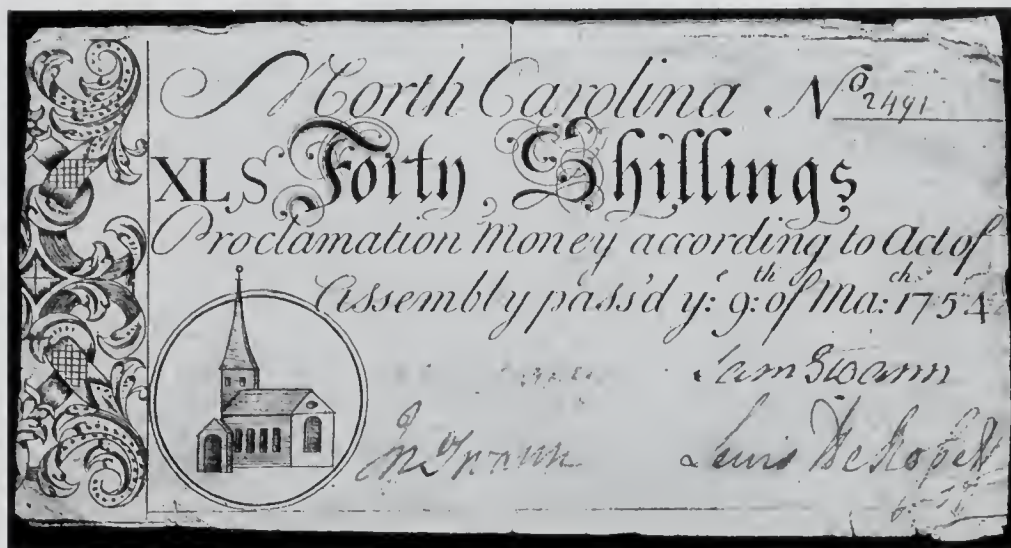 North Carolina No 2491
XLS Forty Shillings
Proclamation Money according to Act of
Assembly pass'd ye: 9:th of Ma:ch 1754
Sam Swann
Jno Swann Lewis DeRosset